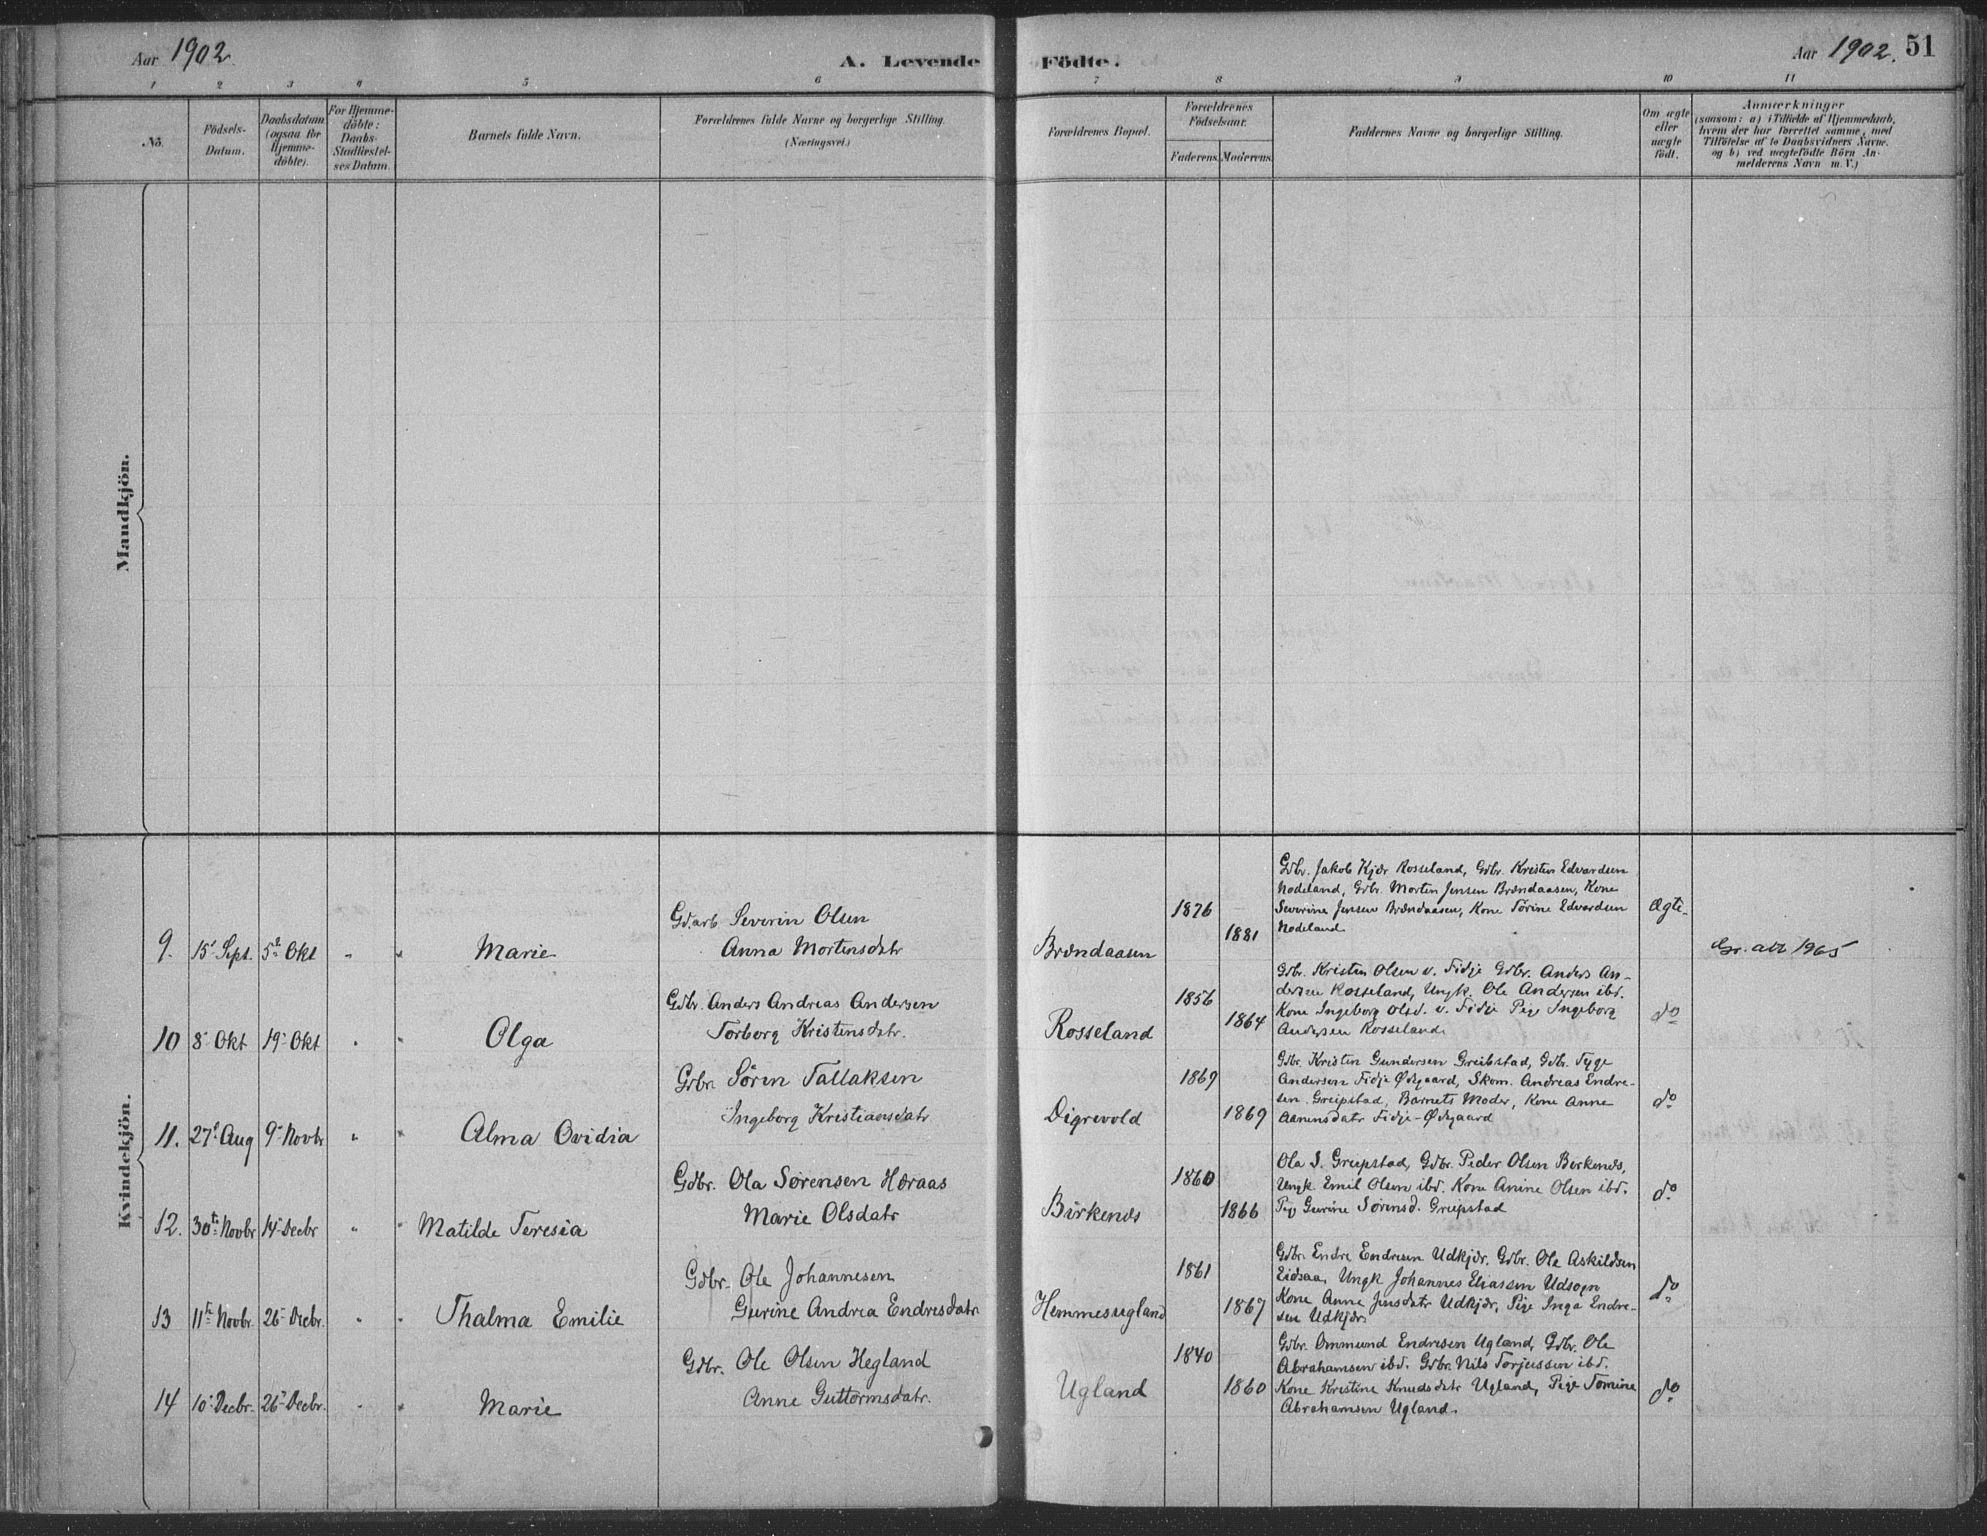 Aar 1902.
A. Levende Födte.
Aar 1902. 51
1 2 3 4 5 6 7 8 9 10 11
No.
Födsels-
Datum.
Daabsdatum
(ogsaa for
Hjemme-
döbte).
For Hjemme-
döbte:
Daabs-
Stadfæstel-
ses Datum.
Barnets fulde Navn.
Forældrenes fulde Navne og borgerlige Stilling.
(Næringsvei.)
Forældrenes Bopæl.
Forældrenes
Födselsaar.
Faderens. Moderens.
Faddernes Navne og borgerlige Stilling.
Om ægte
eller
uægte
födt.
Anmærkninger
(saasom: a) i Tilfælde af Hjemmedaab,
hvem der har forrettet samme, med
Tilföielse af to Daabsvidners Navne,
og b) ved uægtefödte Börn An-
melderens Navn m. V.)
Mandkjön.
Kvindekjön.
9. 15 Sept. 5 Okt " " Marie
Gd.arb Severin Olsen
Anna Mortensdatr
Brændaasen
1876
1881
Gdbr. Jakob Kjær Rosseland, Gdbr. Kristen Edvardsen
Nodeland, Gdbr. Morten Jensen Brændaasen, Kone
Severine Jensen Brændaasen, Kone Tørine Edvardsen
Nodeland
Ægte
1965
10 8 Okt 19 Okt " " Olga
Gdbr. Anders Andreas Andersen
Torborg Kristensdatr.
Rosseland
1856
1864
Gdbr. Kristen Olsen v. Fidje Gdbr. Anders An-
dersen Rosseland, Ungk. Ole Andersen ibd.
Kone Ingeborg Olsd. v. Fidje Pige Ingeborg
Andersen Rosseland
do
11. 27 Aug 9 Novbr " " Alma Ovidia
Gdbr. Sören Tallaksen
Ingeborg Kristiansdatr
Digrevold
1869
1869
Gdbr. Kristen Gundersen Greibstad, Gdbr. Tyge
Andersen Fidje Ødegaard, Skom. Andreas Endre-
sen Greipstad, Barnets Moder, Kone Anne
Aanensdatr Fidje-Ødegaard
do
12. 30te Novbr 14 Decbr " " Matilde Teresia
Gdbr. Ola Sørensen Heraas
Marie Olsdatr
Birkenes
1860
1866
Ola S. Greipstad, Gdbr. Peder Olsen Berkenes,
Ungk. Emil Olsen ibd. Kone Anine Olsen ibd.
Pige Gurine Sörensd. Greipstad
do
13 11te Novbr. 26 Decbr. " " Thalma Emilie
Gdbr. Ole Johannesen
Gurine Andrea Endresdatr
Hemmesugland
1861
1867
Gdbr. Endre Endresen Udkjær. Gdbr. Ole Askildsen
Eidsaa, Ungk Johannes Eliassen Udsogn
Kone Anne Jensdatr Udkjær, Pige Inga Endre-
sen Udkjær.
do
14 10 Decbr. 26 Decbr. " " Marie
Gdbr. Ole Olsen Hegland
Anne Guttormsdatr.
Ugland
1840
1860
Gdbr. Ommund Endresen Ugland, Gdbr. Ole
Abrahamsen ibd. Gdbr. Nils Torjussen ibd.
Kone Kristine Knudsdatr Ugland, Pige Tomine
Abrahamsen Ugland.
do